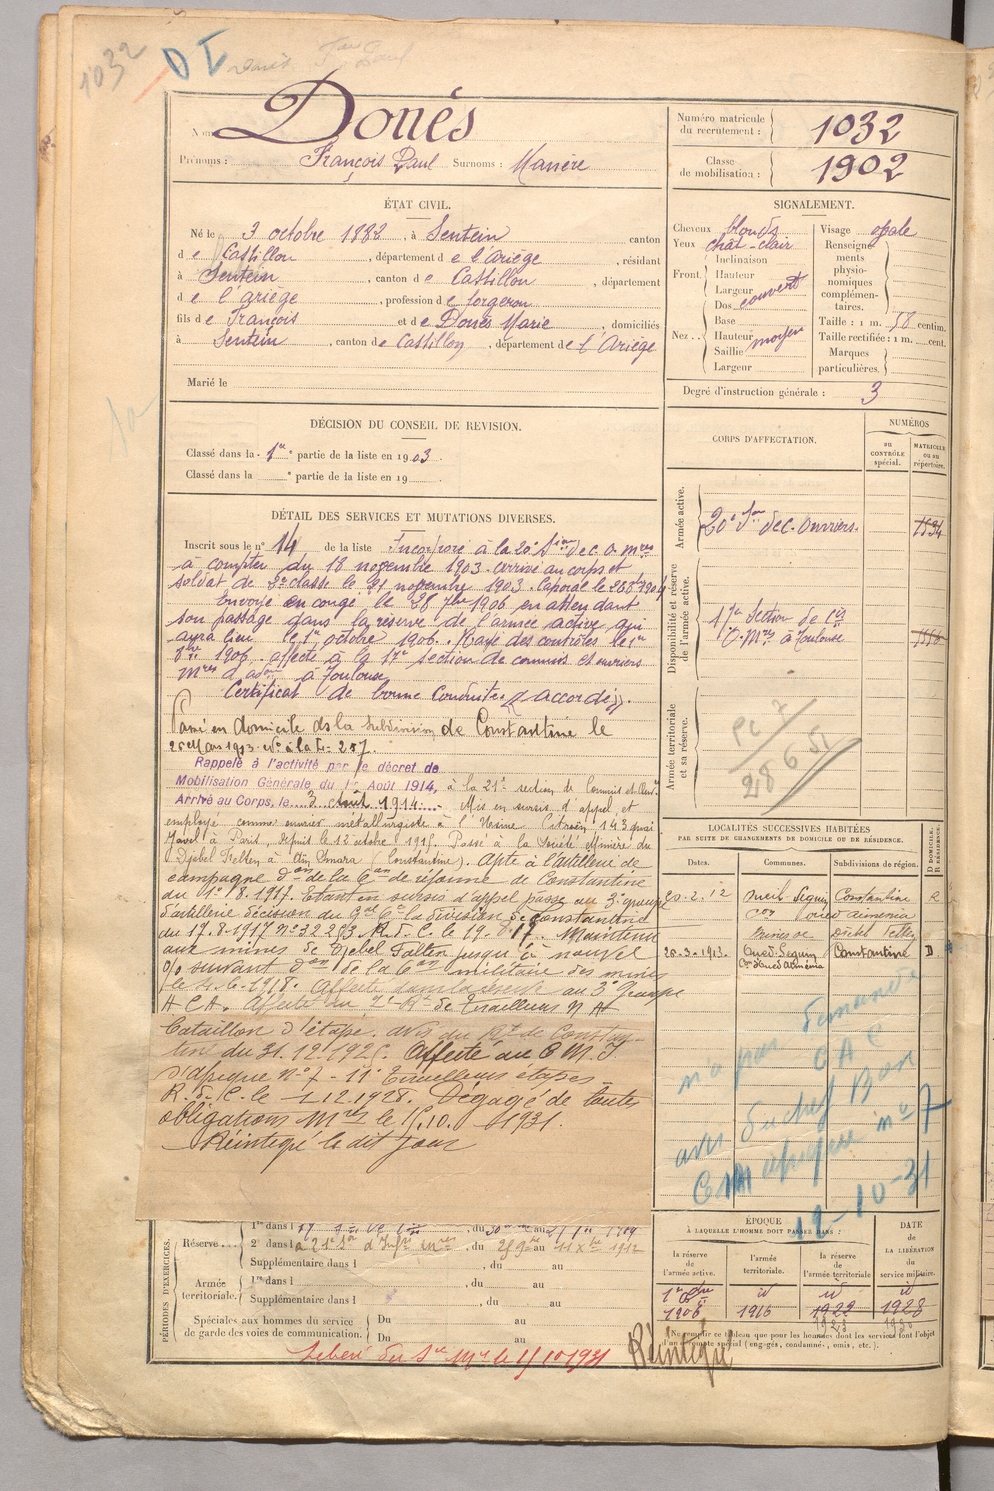 1032
D I
Nom Donés
Prénoms : François Paul Surnoms : Manière
Numéro matricule du recrutement : 1032
Classe de mobilisation : 1902
ÉTAT CIVIL.
Né le 3 octobre 1882, à Sentein canton
de Castillon, département de l'Ariège, résidant
à Sentein, canton de Castillon, département
de l'ariège, profession de forgeron
fils de François et de Donés Marie, domiciliés
à Sentein, canton de Castillon, département de l'Ariège
Marié le
SIGNALEMENT.
Cheveux blonds
Yeux chât-clair
Front. Inclinaison
Hauteur
Largeur
Nez. Dos couvert
Base
Hauteur moyen
Saillie
Largeur
Visage ovale
Renseignements physionomiques complémentaires.
Taille : 1 m. 58 centim.
Taille rectifiée : 1 m. cent.
Marques particulières.
Degré d'instruction générale : 3
DÉCISION DU CONSEIL DE REVISION.
Classé dans la 1re partie de la liste en 1903.
Classé dans la e partie de la liste en 19
CORPS D'AFFECTATION.
NUMÉROS
AU CONTRÔLE spécial.
MATRICULE OU AU répertoire.
Armée active.
20e Son de C. Ouvriers.
1534
Disponibilité et réserve de l'armée active.
17e Section de Cis
O. Mres à Toulouse
Armée territoriale et sa réserve.
DÉTAIL DES SERVICES ET MUTATIONS DIVERSES.
Inscrit sous le n° 14 de la liste Incorporé à la 20e Son de C. O. Mres
à compter du 18 novembre 1903. Arrivé au corps et
soldat de 2e classe le 21 novembre 1903. Caporal le 28 1904
Envoyé en congé le 28 7bre 1906 en attendant
son passage dans la réserve de l'armée active qui
aura lieu le 1er octobre 1906. Rayé des contrôles le 1er
8bre 1906. affecté à la 17e section de commis et ouvriers
Mres d'adon à Toulouse
Certificat de bonne Conduite "accordé".
Passé en domicile ds la Subdivision de Constantine le
26 Mars 1913. No à la L= 257.
Rappelé à l'activité par le décret de
Mobilisation Générale du 1er Août 1914, à la 21e section de Commis et Ouv.
Arrivé au Corps, le 3 Août 1914. Mis en sursis d'appel et
employé comme ouvrier métallurgiste à l'Usine Citroën 143 quai
Javel à Paris, depuis le 12 octobre 1915. Passé à la Société Minière du
Djebel Felten à Aïn Smara (Constantine). Apte à l'artillerie de
campagne don de la Con de réforme de Constantine
du 1er 8. 1917. Etant en sursis d'appel passe au 3e groupe
d'artillerie décision du Gal Ct la division de Constantine
du 17.8.1917 n° 32283 R. d. C. le 19.8.17. Maintenu
aux mines de Djebel Falten jusqu'à nouvel
o/o suivant don de la Con militaire des mines
le 4.6.1918. Affecté dans la réserve au 3e Groupe
A C A. Affecté au Rt de Tirailleurs
bataillon d'étape. avis du de Constantine
du 31.12.192 . Affecté au C M I
d'Afrique n° 7 - 11e Tirailleurs étapes
R. d. C. le 1.12.1928. Dégagé de toutes
obligations Mres le 15.10.1931.
Réintégré le dit jour
LOCALITÉS SUCCESSIVES HABITÉES
PAR SUITE DE CHANGEMENTS DE DOMICILE OU DE RÉSIDENCE.
Dates. Communes. Subdivisions de région. D DOMICILE. R RÉSIDENCE.
20.2.12 Oueil Seguin Constantine R
Con oued Atmenia
Mines de Djebel Felten
26-3-1913. Oued-Seguin Constantine D
Cne d'Oued Atménia
n'a pas demandé
C A C
avis du chef Bon
CMI afrique n° 7
12-10-31
PÉRIODES D'EXERCICES.
Réserve 1re dans l , du au
2e dans l a 21e Son d'Infre Mres, du au 1912
Supplémentaire dans l , du au
Armée territoriale. 1re dans l , du au
Supplémentaire dans l , du au
Spéciales aux hommes du service de garde des voies de communication. Du au
Du au
Libéré du Sce Mre le 15/10/1931
Réintégré
ÉPOQUE À LAQUELLE L'HOMME DOIT PASSER DANS :
la réserve de l'armée active.
l'armée territoriale.
la réserve de l'armée territoriale.
DATE de LA LIBÉRATION du service militaire.
1er 8bre 1906
id 1916
id 1922
id 1928
Ne remplir ce tableau que pour les hommes dont les services font l'objet d'un compte spécial (engagés, condamnés, omis, etc.).